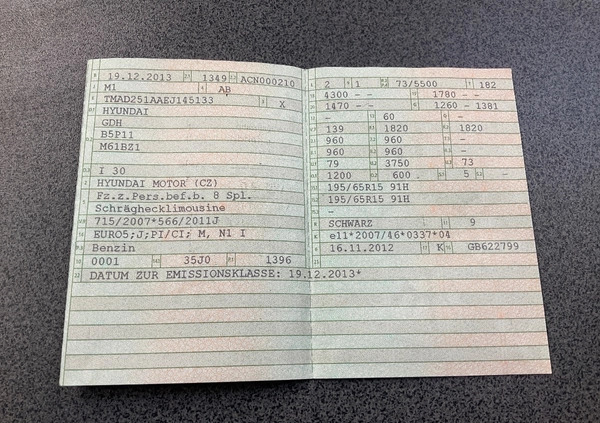 19.12.2013 1349 ACN000210
M1 AB
TMAD251AAEJ145133 X
HYUNDAI
GDH
B5P11
M61BZ1
I 30
HYUNDAI MOTOR (CZ)
Fz.z.Pers.bef.b. 8 Spl.
Schräghecklimousine
715/2007*566/2011J
EURO5;J;PI/CI; M, N1 I
Benzin
0001 35J0 1396
DATUM ZUR EMISSIONSKLASSE: 19.12.2013*
2 1 73/5500 182
4300 - - 1780 - -
1470 - - 1260 - 1381
- 60 -
139 1820 1820
960 960 -
960 960 -
79 3750 73
1200 600 5 -
195/65R15 91H
195/65R15 91H
-
SCHWARZ 9
e11*2007/46*0337*04
16.11.2012 K GB622799